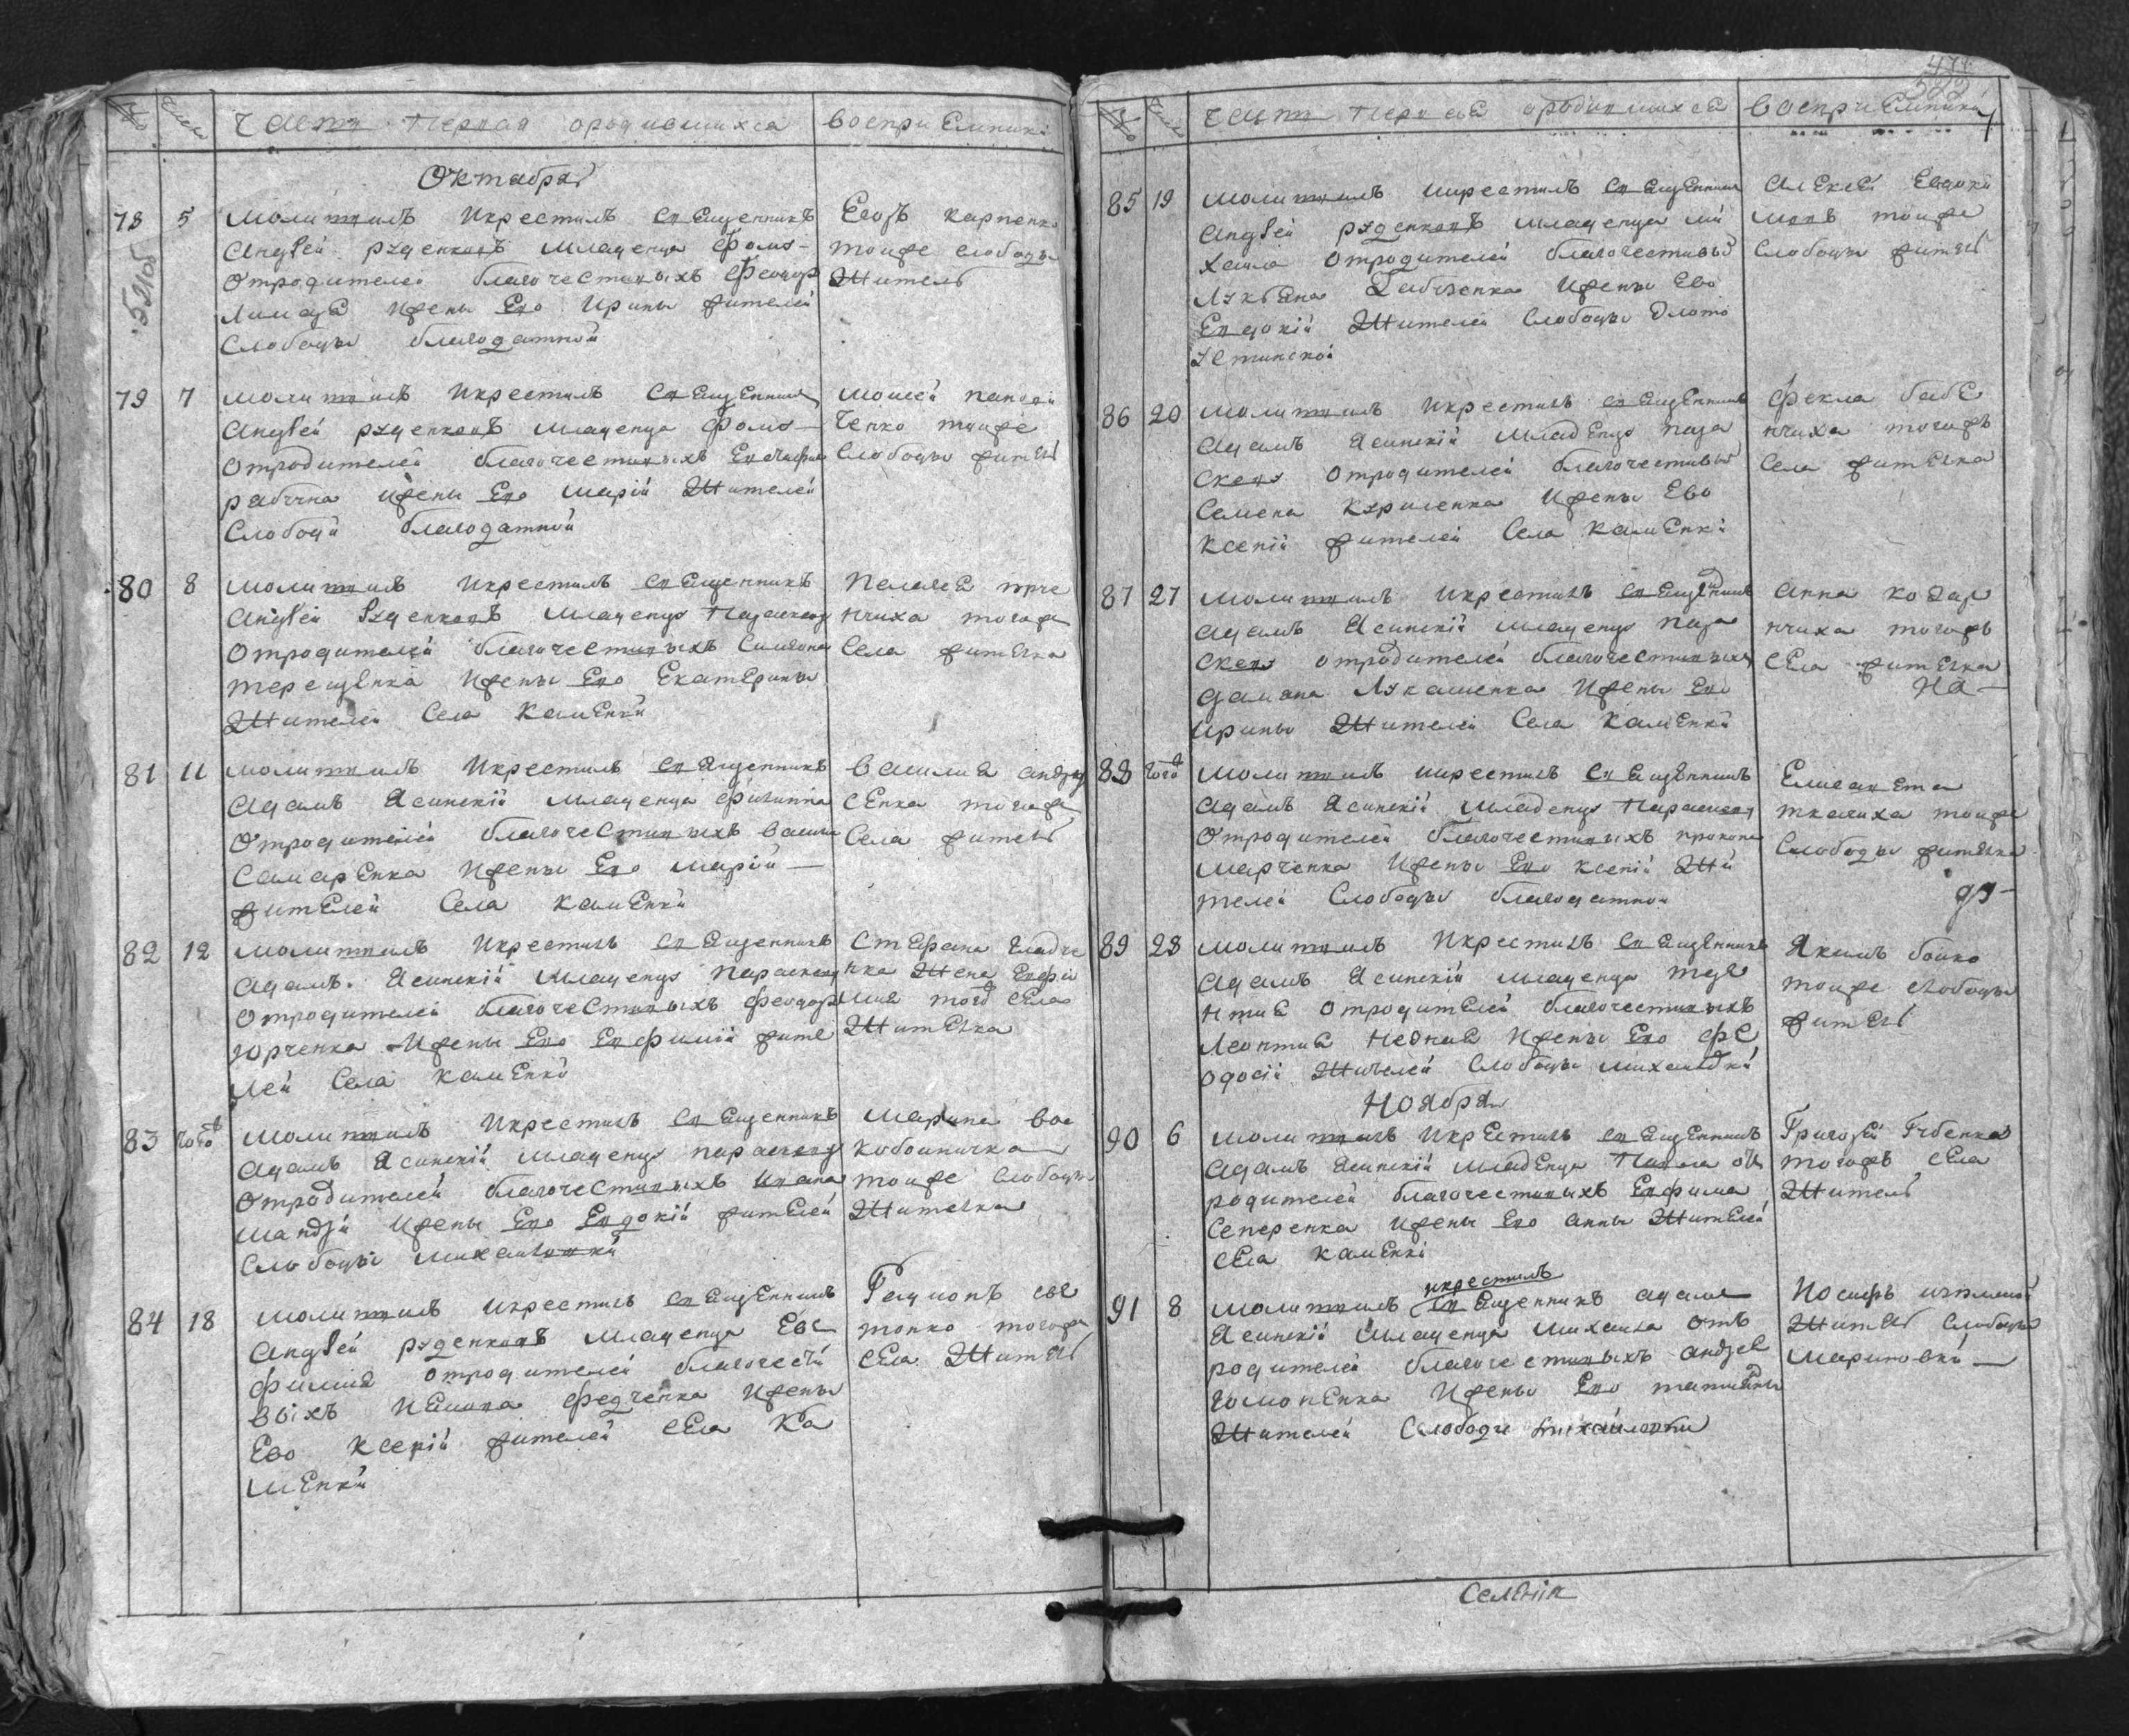 часть Первая ородившихса
восприемники
Октабра
78 5
молитвилъ икрестилъ священникъ
Андрей руденковъ младенца Фому
отродителей благочестивыхъ Феодора
ижены Ево Ирины жителей
слободы благодатной
Егоръ карпенко
тоиже слободы
житель
79 7
молитвилъ икрестилъ священникъ
Андрей руденковъ младенца Фому
отродителей благочестивыхъ
ижены Ево Марiи жителей
слободы благодатной
моисей
ченко тоиже
слободы житель
80 8
молитвилъ икрестилъ священникъ
Андрей руденковъ младенцу Параскеву
отродителей благочестивыхъ Симеона
терещенка ижены Ево Екатерины
жителей села каменки
Пелагеа
нчиха тогоже
села жителка
81 11
молитвилъ икрестилъ священникъ
Адамъ Ясинскiй младенца Филиппа
отродителей благочестивыхъ васили
самаренка ижены Ево марiи
жителей села каменки
василиа андру
сенка тогоже
села житель
82 12
молитвилъ икрестилъ священникъ
Адамъ Ясинскiй младенцу параскеву
отродителей благочестивыхъ феодора
юрченка ижены Ево Евфимiи жите
лей села каменки
Стефана гладче
нка жена Евфи
миа того села
жителка
83 того
молитвилъ икрестилъ священникъ
Адамъ Ясинскiй младенцу параскеву
отродителей благочестивыхъ ивана
мандзи ижены Ево Евдокiи жителей
слободы михаиловки
марина вое
кобоиничка
тоиже слободы
жителка
84 18
молитвилъ икрестилъ священникъ
Андрей руденковъ младенца Ев
фимиа отродителей благочести
выхъ федченка ижены
Ево ксенiи жителей села Ка
менки
Радионъ све
тонко тогоже
села житель
часть первая ородившихса
восприемники
85 19
молитвилъ икрестилъ священникъ
Андрей руденковъ младенца ми
хаила отродителей благочестивы
лукьана ижены Ево
Евдокiи жителей слободы
устинской
Алексей Евдоки
мовъ тоиже
слободы житель
86 20
молитвилъ икрестилъ священникъ
Адамъ Ясинскiй младенцу пара
скеву отродителей благочестивы
семена куриленка ижены Ево
ксенiи жителей села каменки
Фекла бабе
нчиха тогожъ
села жителка
87 27
молитвилъ икрестилъ священникъ
Адамъ Ясинскiй младенцу пара
скеву отродителей благочестивыхъ
дамиана лукашенка ижены Ево
ирины жителей села каменки
Анна козар
нчиха тогожъ
села жителка
на
88 того
молитвилъ икрестилъ священникъ
Адамъ Ясинскiй младенцу параскеву
отродителей благочестивыхъ прокопа
марченка ижены Ево ксенiи жи
телей слободы благодатной
Елисавета
ткачиха тоиже
слободы жителка
ду
89 28
молитвилъ икрестилъ священникъ
Адамъ Ясинскiй младенца
отродителей благочестивыхъ
леонтиа ижены Ево Фе
одосiи жителей слободы михаиловки
Якимъ бойко
тоиже слободы
житель
Ноября
90 6
молитвилъ икрестилъ священникъ
Адамъ Ясинскiй младенца Павла от
родителей благочестивыхъ Евфима
северенка ижены Ево анны жителей
села каменкi
Григорей губенка
тогожъ села
житель
91 8
икрестилъ
молитвилъ священникъ адамъ
Ясинскiй младенца михаила отъ
родителей благочестивыхъ андреа
гомоненка ижены Ево татианы
жителей слободы михайловки
Иосифъ
житель слободы
мариновки